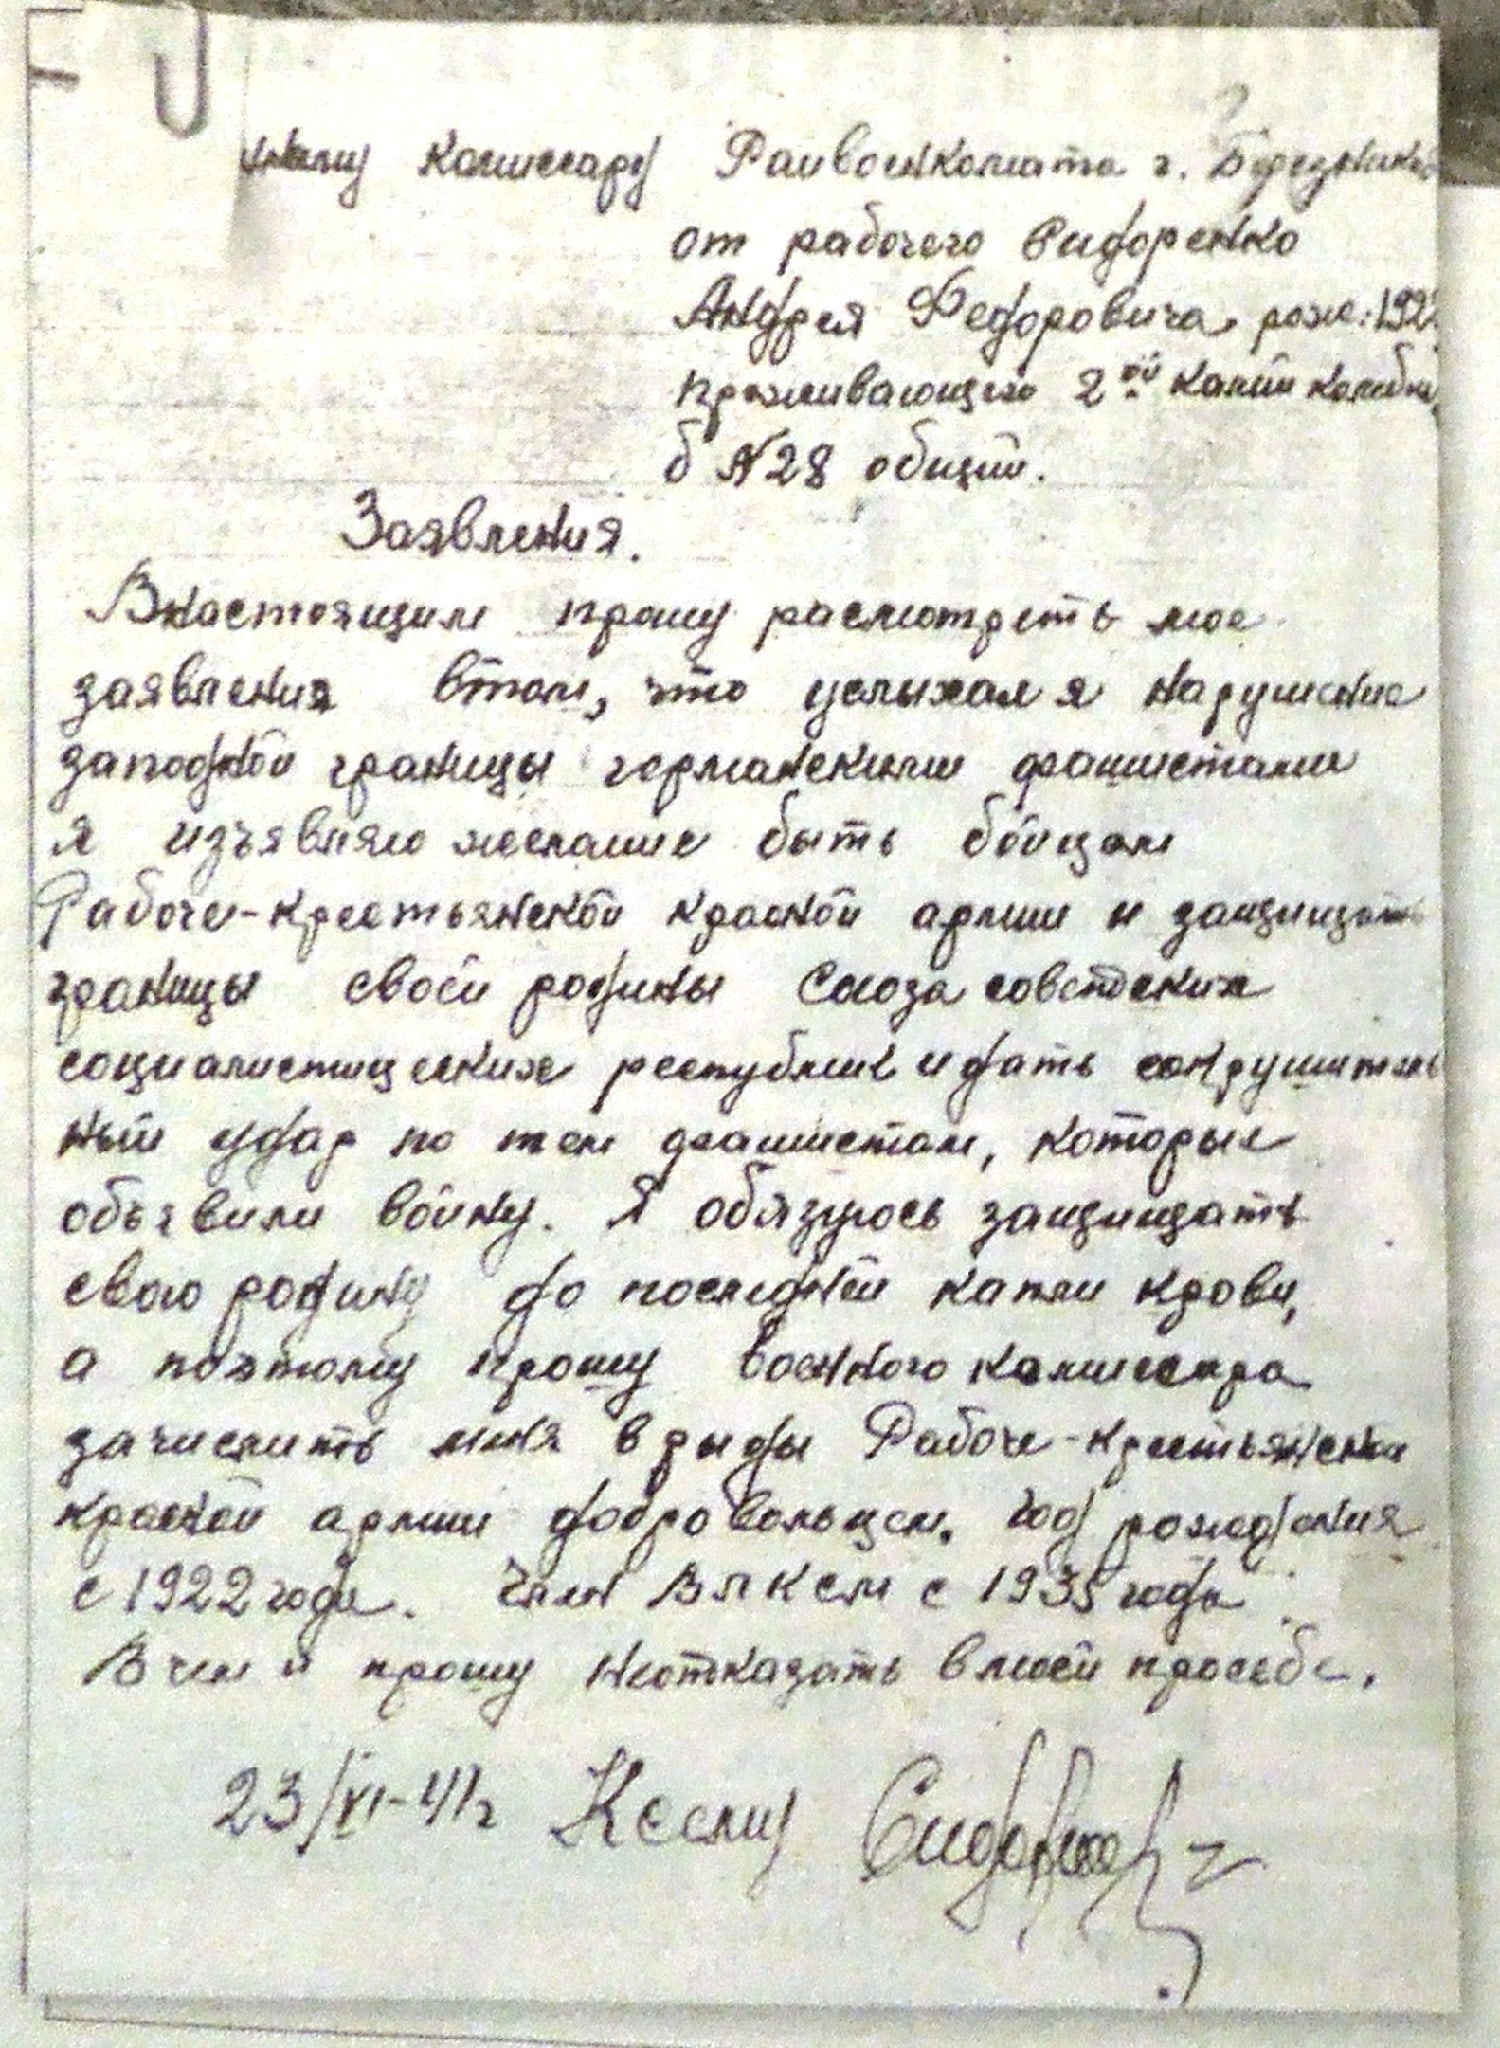 Комиссару Райвоенкомата г. Березники
от рабочего Сидоренко
Андрея Федоровича рожд. 192
проживающего 2ой Калий комбин
б №28 общит.
Заявления.
Внастоящим прошу расмотреть мое
заявления втом, что услыхал я нарушение
западной границы германскими фашистами
я изъявляю желание быть бойцом
Рабоче-крестьянской красной армии и защищать
границы своей родины Союза советских
социалистицеских республик и дать сокрушитель
ный удар по тем фашистам, которые
объявили войну. Я обязуюсь защищать
свою родину до последней капли крови,
а поэтому прошу военного комиссара
зачислить меня в ряды Рабоче-крестьянской
красной армии добровольцем. Год рождения
с 1922 года. Член ВЛКСМ с 1935 года
В чем и прошу неотказать в моей просьбе.
23/VI-41г К сему Сидоренко